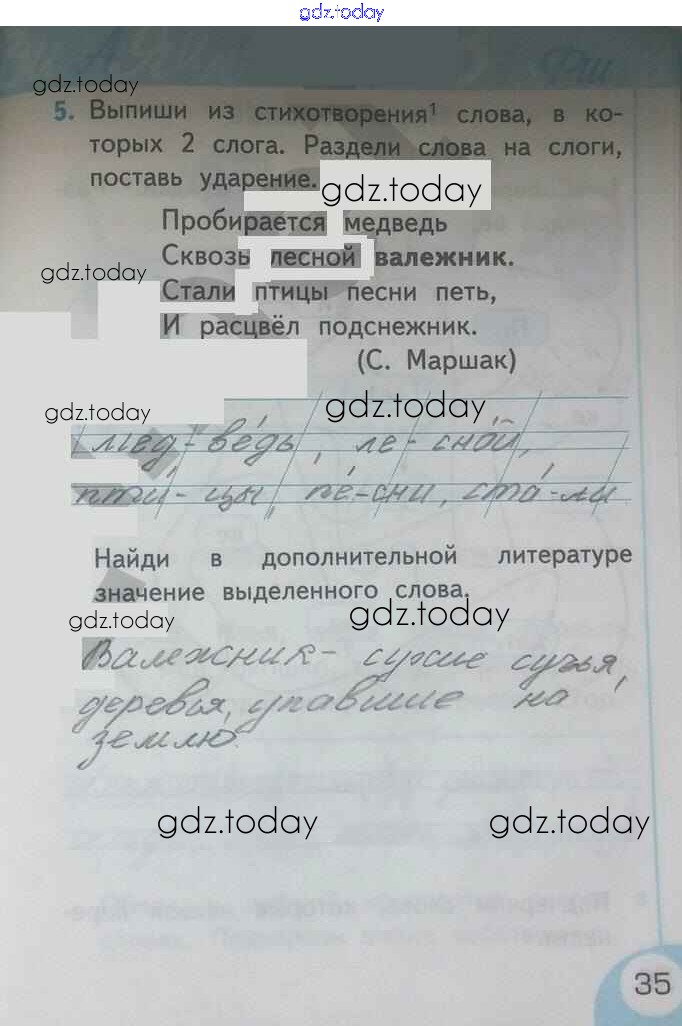 gdz.today
gdz.today
5. Выпиши из стихотворения¹ слова, в ко-
торых 2 слога. Раздели слова на слоги,
поставь ударение.
gdz.today
Пробирается медведь
Сквозь лесной валежник.
gdz.today
Стали птицы песни петь,
И расцвёл подснежник.
(С. Маршак)
gdz.today gdz.today
Мед-ве́дь, ле-сно́й,
пти́-цы, пе́-сни, ста́-ли
Найди в дополнительной литературе
значение выделенного слова.
gdz.today gdz.today
Валежник - сухие сучья,
деревья, упавшие на
землю.
gdz.today gdz.today
35